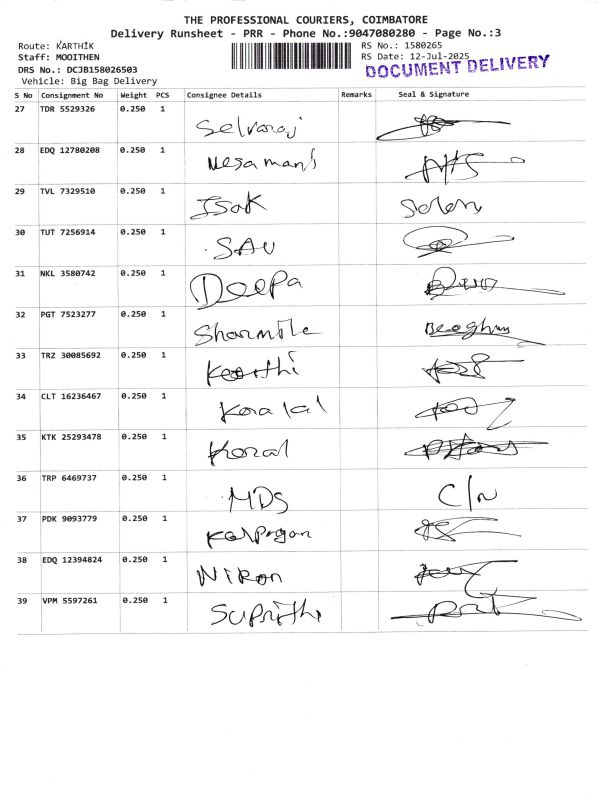 THE PROFESSIONAL COURIERS, COIMBATORE
Delivery Runsheet - PRR - Phone No.:9047080280 - Page No.:3
Route: KARTHIK
RS No.: 1580265
Staff: MOOITHEN
RS Date: 12-Jul-2025
DRS No.: DCJB158026503
DOCUMENT DELIVERY
Vehicle: Big Bag Delivery
S No Consignment No Weight PCS Consignee Details Remarks Seal & Signature
27 TDR 5529326 0.250 1 Selvaraj
28 EDQ 12780208 0.250 1 Nesamani
29 TVL 7329510 0.250 1 Isak
30 TUT 7256914 0.250 1 SAU
31 NKL 3580742 0.250 1 Deepa
32 PGT 7523277 0.250 1 Sharmile
33 TRZ 30085692 0.250 1 Keerthi
34 CLT 16236467 0.250 1
35 KTK 25293478 0.250 1
36 TRP 6469737 0.250 1 MDS C/n
37 PDK 9093779 0.250 1
38 EDQ 12394824 0.250 1
39 VPM 5597261 0.250 1 Suprithi